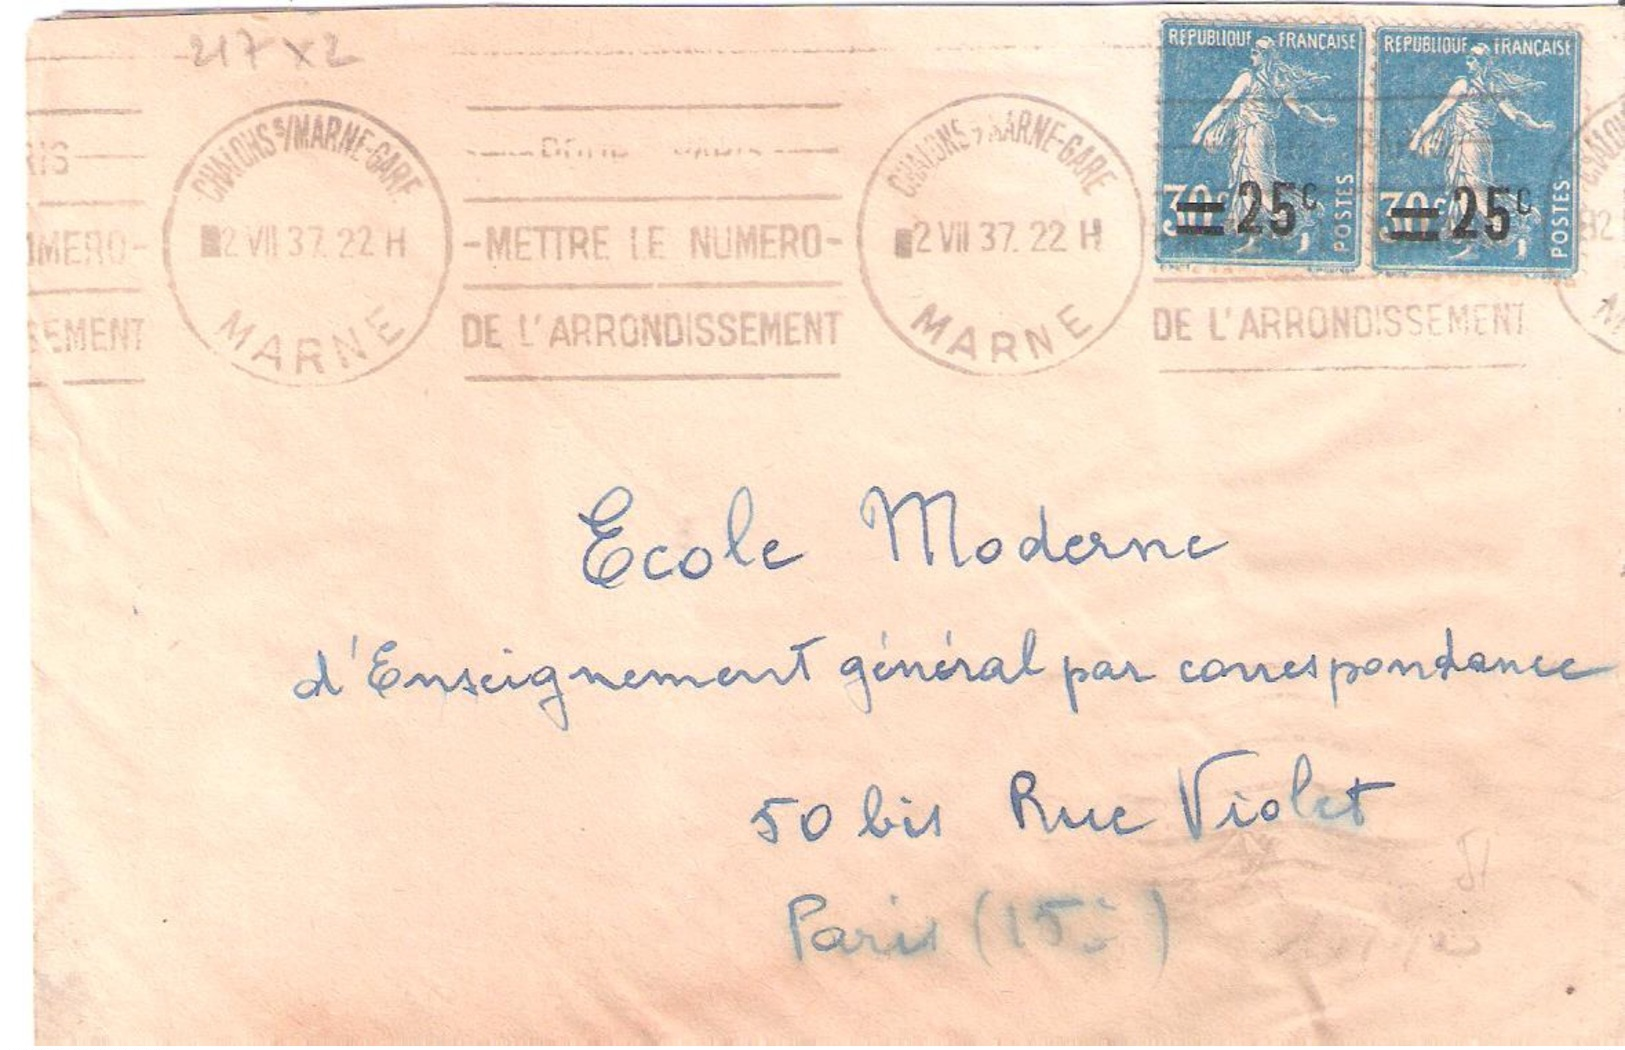 217 x 2
REPUBLIQUE FRANÇAISE REPUBLIQUE FRANÇAISE
30c 25c POSTES 30c 25c POSTES
RIS
CHALONS S/MARNE-GARE CHALONS S/MARNE-GARE CHALON
2 VII 37. 22 H -METTRE LE NUMERO- 2 VII 37. 22 H
MERO-
MARNE DE L'ARRONDISSEMENT MARNE DE L'ARRONDISSEMENT
SEMENT
Ecole Moderne
d'Enseignement général par correspondance
50 bis Rue Violet
Paris (15è)